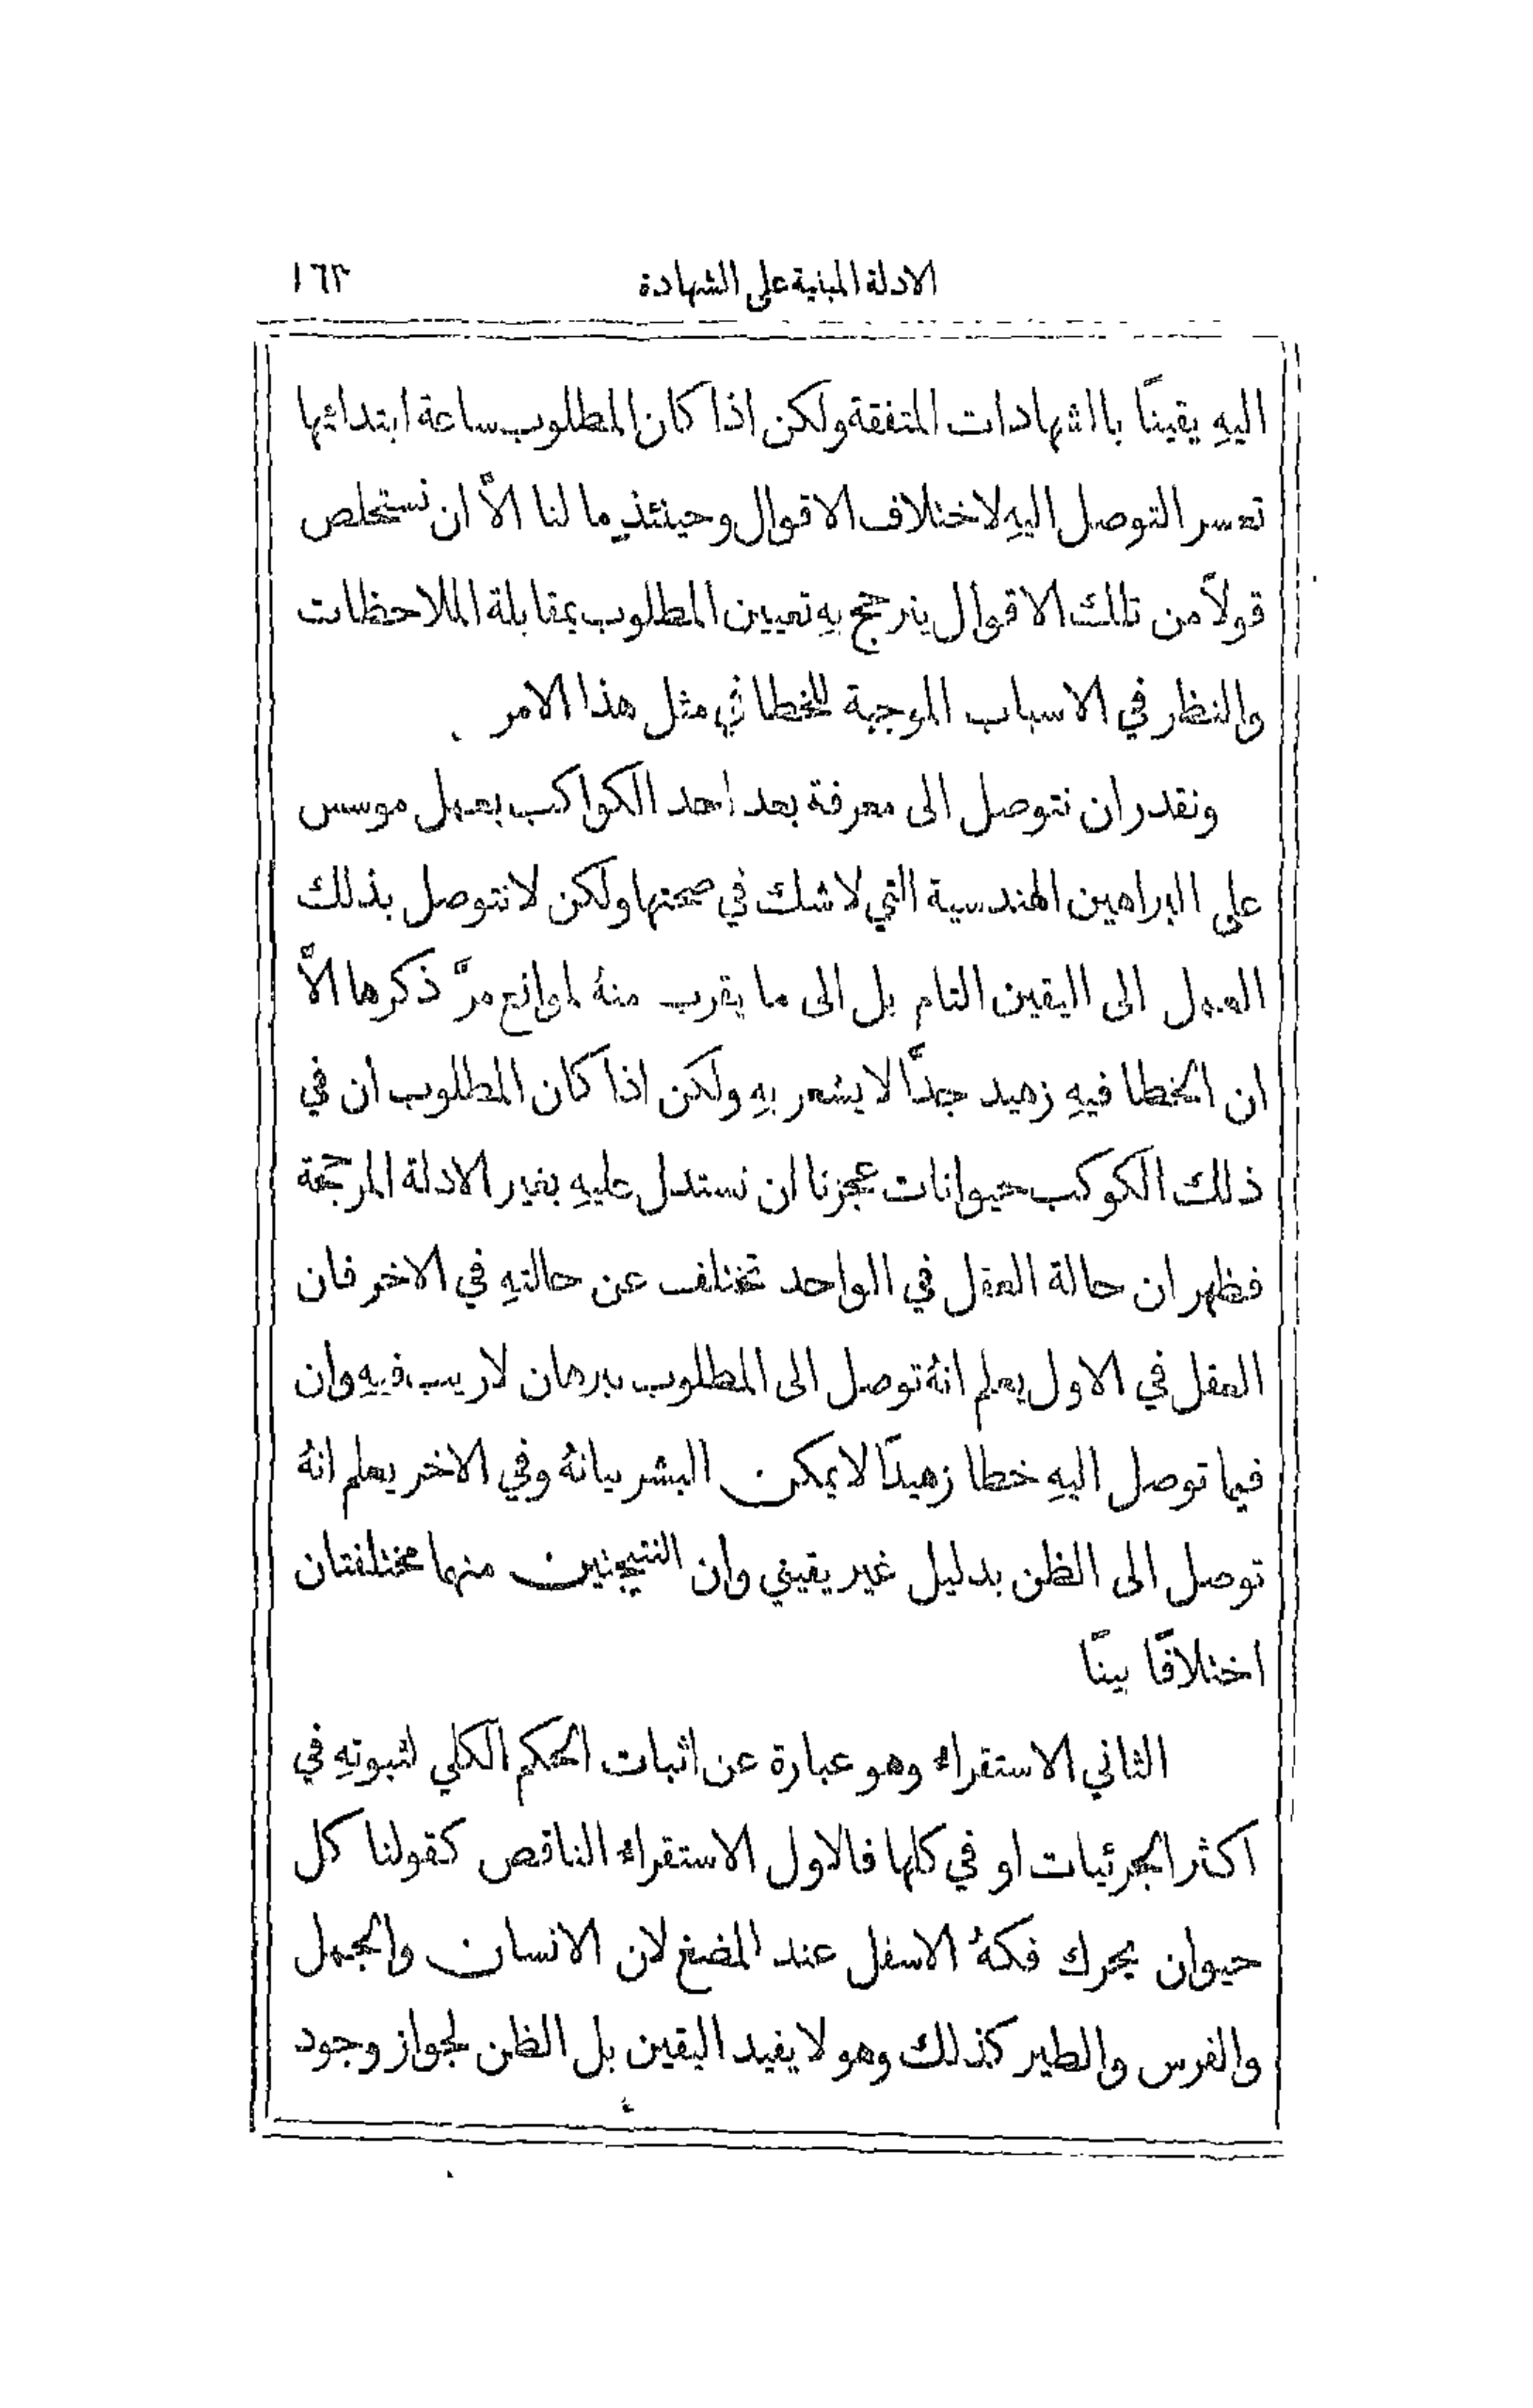 الادلة المبنية على الشهادة ١٦٣
اليهِ يقينًا بالشهادات المتفقة ولكن اذا كان المطلوب ساعة ابتدائها
تعسر التوصل اليهِ لاختلاف الاقوال وحينئذٍ ما لنا الاَّ ان نستخلص
قولاً من تلك الاقوال يترجح بهِ تعيين المطلوب بمقابلة الملاحظات
والنظار في الاسباب الموجبة للخطا في مثل هذا الامر
ونقدر ان نتوصل الى معرفة بعد احد الكواكب بعمل موسس
على البراهين الهندسية التي لا شك في صحتها ولكن لا نتوصل بذلك
العمل الى اليقين التام بل الى ما يقرب منهُ لموانع مرَّ ذكرها الاَّ
ان الخطا فيهِ زهيد جدًّا لا يشعر بهِ ولكن اذا كان المطلوب ان في
ذلك الكوكب حيوانات عجزنا ان نستدل عليهِ بغير الادلة المرجحة
فظهر ان حالة العقل في الواحد تختلف عن حالتهِ في الاخر فان
العقل في الاول يعلم انهُ توصل الى المطلوب ببرهان لا ريب فيهِ وان
فيما توصل اليهِ خطا زهيدًا لا يمكن البشر بيانهُ وفي الاخر يعلم انهُ
توصل الى الظن بدليل غير يقيني وان النتيجتين منها مختلفتان
اختلافًا بينًا
الثاني الاستقراء وهو عبارة عن اثبات الحكم الكلي لثبوتهِ في
اكثر الجزئيات او في كلها فالاول الاستقراء الناقص كقولنا كل
حيوان يحرك فكهُ الاسفل عند المضغ لان الانسان والجمل
والفرس والطير كذلك وهو لا يفيد اليقين بل الظن لجواز وجود